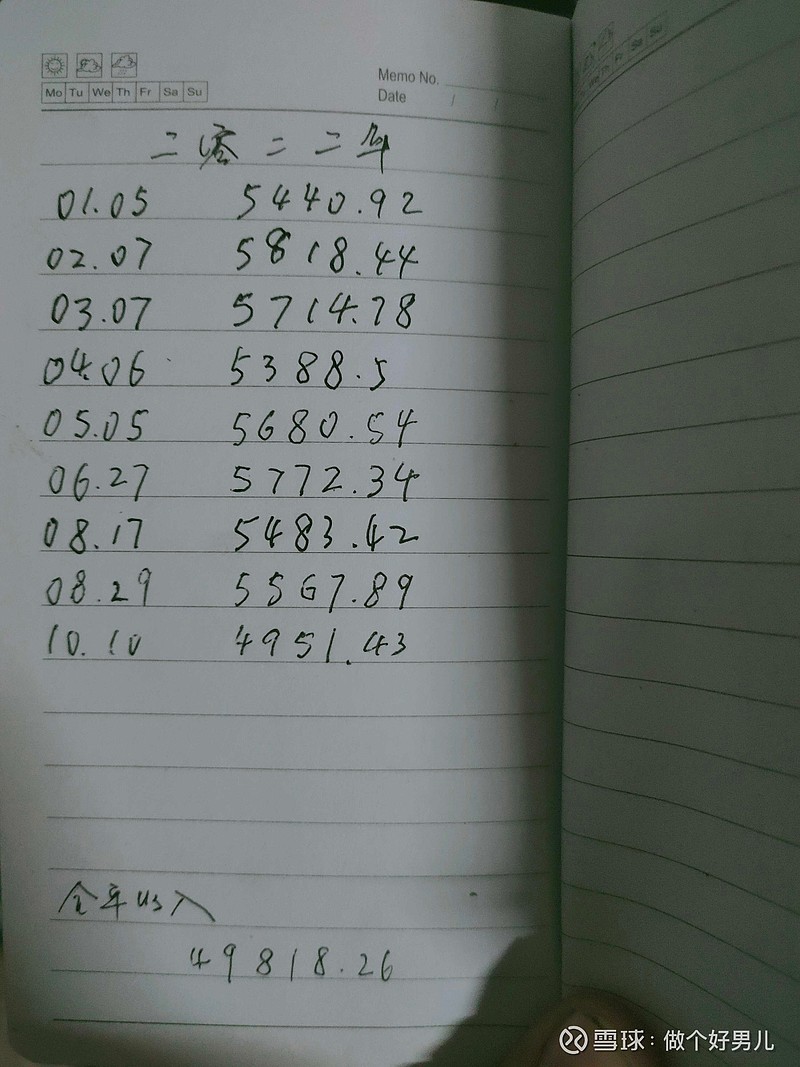 Memo No.
Mo Tu We Th Fr Sa Su
Date / /
二零二二年
01.05 5440.92
02.07 5818.44
03.07 5714.78
04.06 5388.5
05.05 5680.54
06.27 5772.34
08.17 5483.42
08.29 5567.89
10.10 4951.43
全年收入
49818.26
We Th Fr Sa Su
雪球：做个好男儿